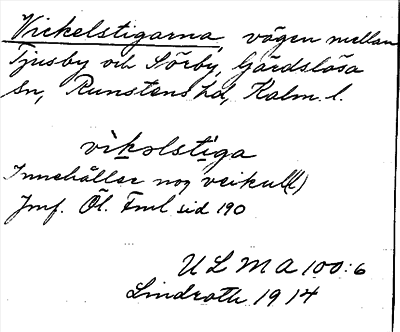 Vickelstigarna, vägen mellan
Tjusby och Störby, Gärdslösa
sn, Runstens hd, Kalm. l.
vik̠olsti̠ga
Innehåller nog veikul(l)
Jmf. Öl. Fml sid 190
ULMA 100:6
Lindroth 1914